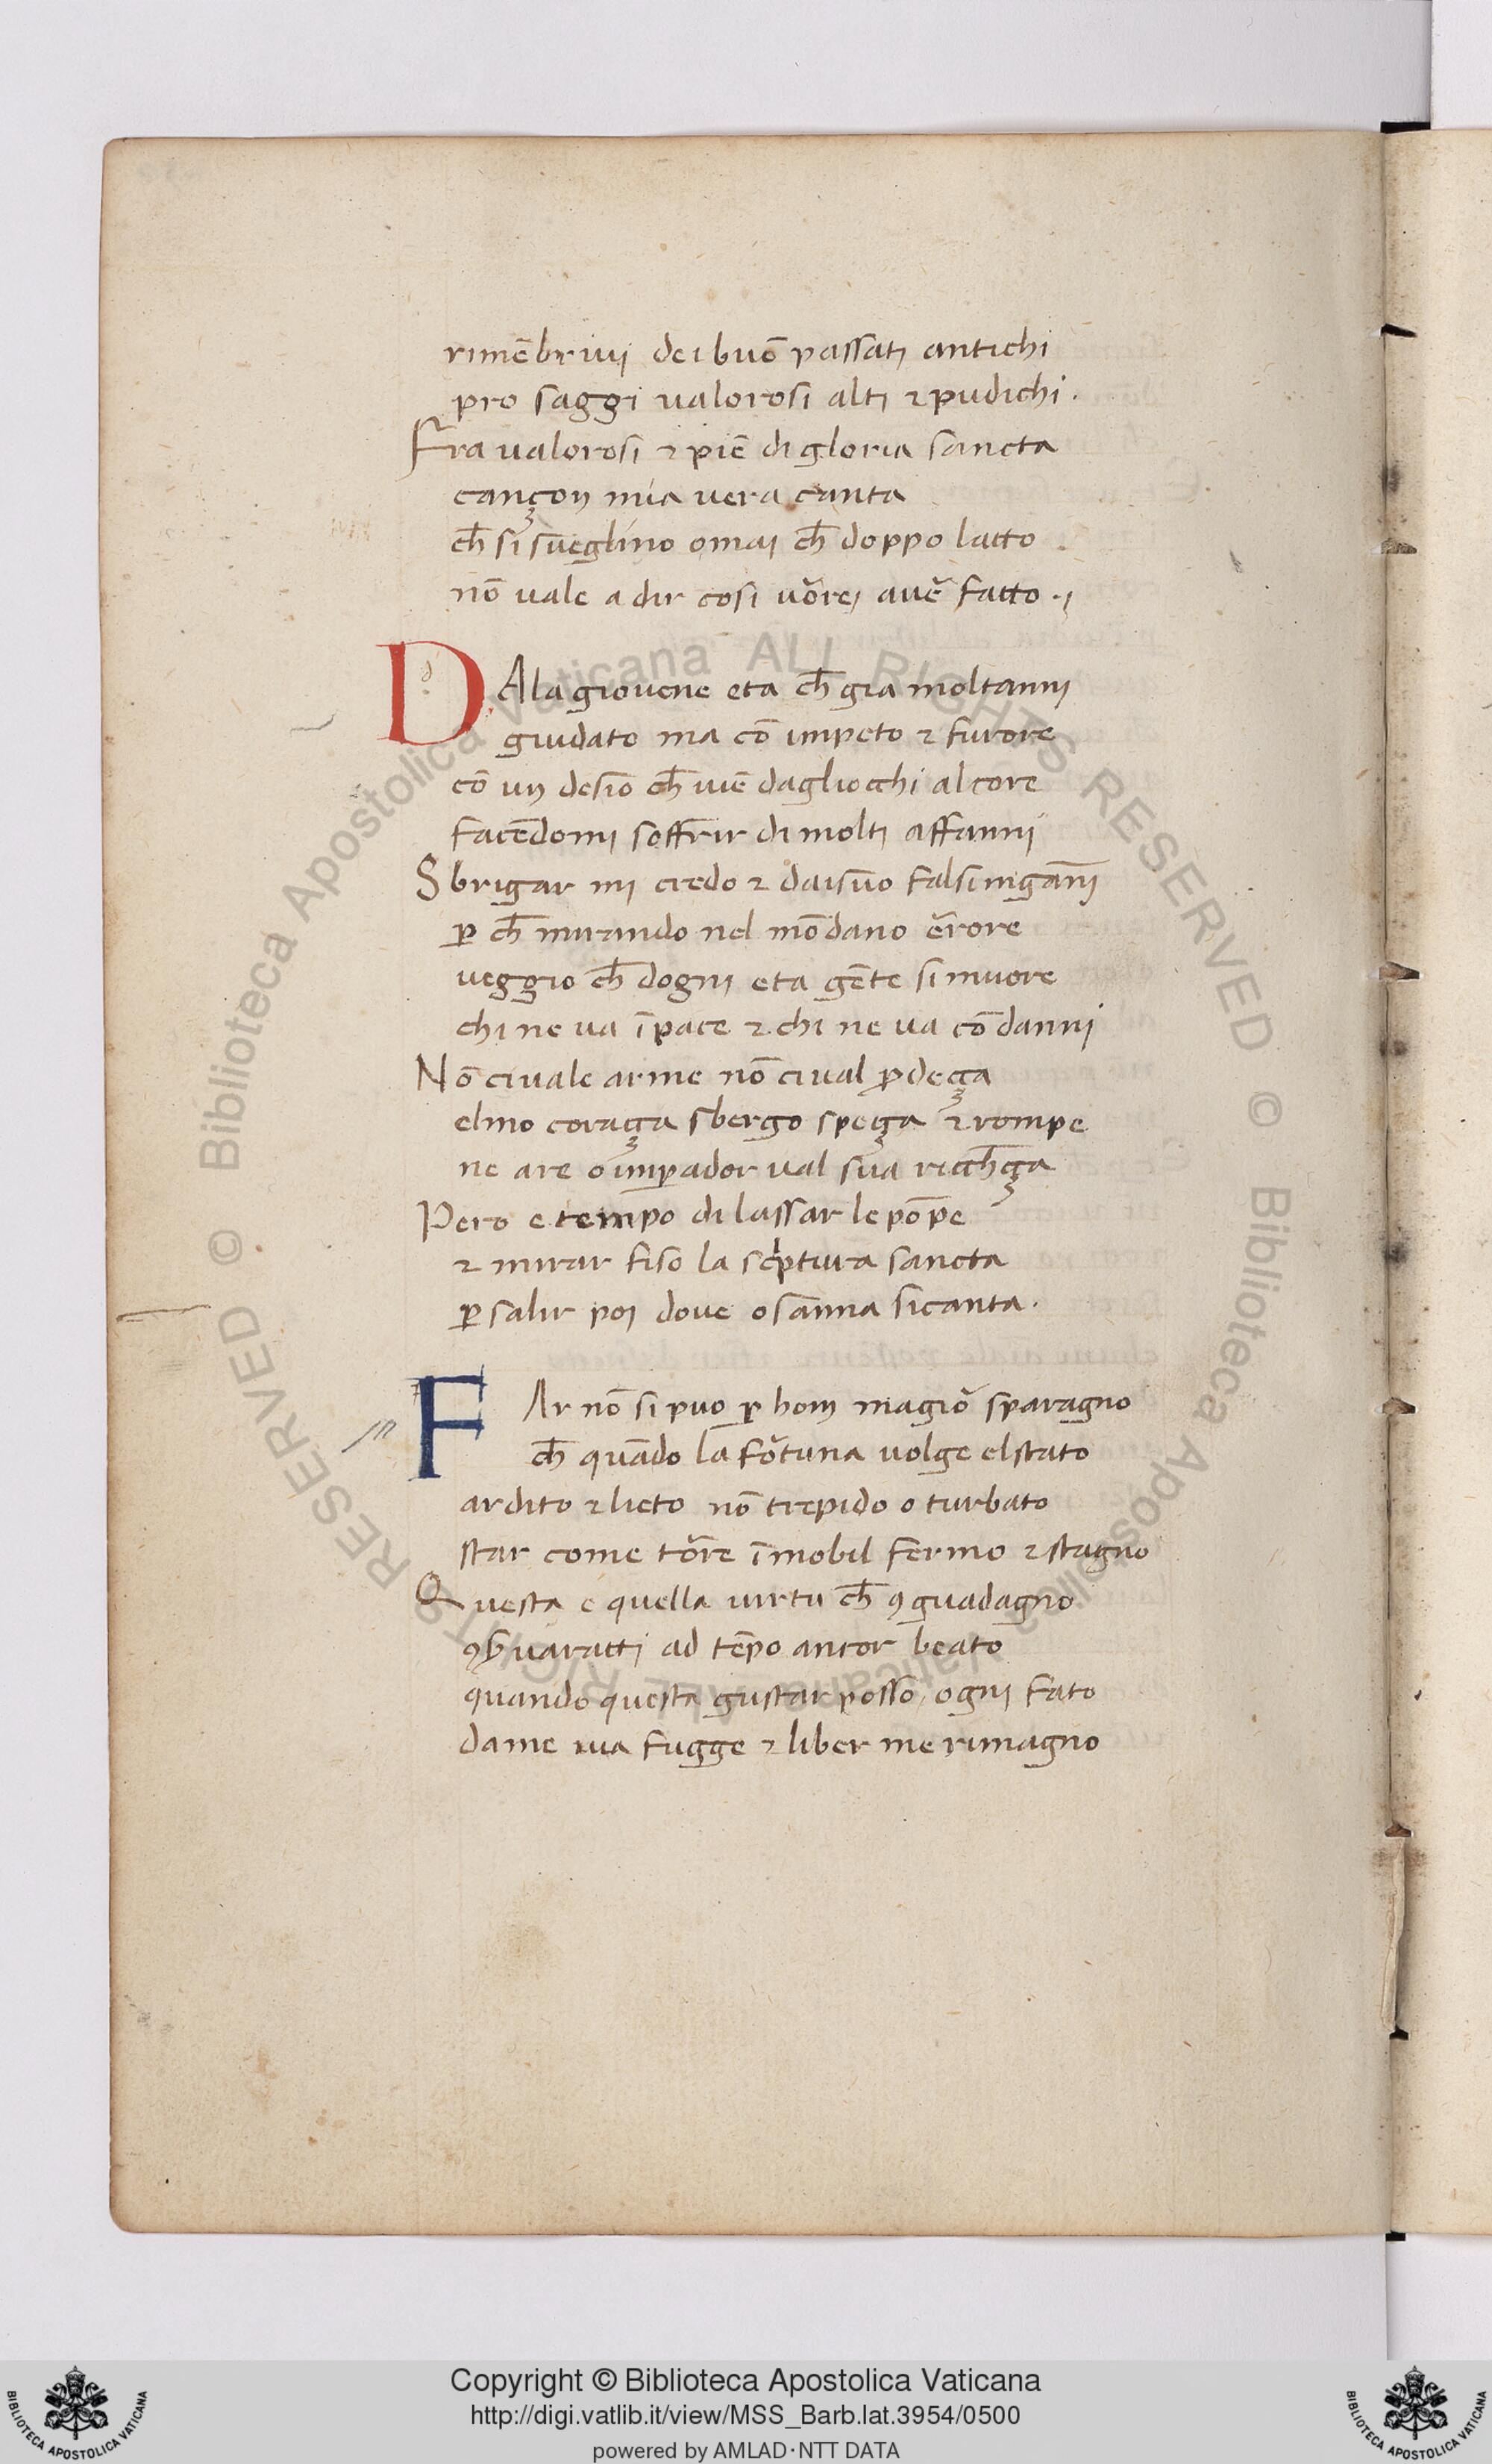 rimēbrivi dei buō passati antichi
pro saggi valorosi alti ⁊ pudichi .
Fra valorosi ⁊ piē di gloria sancta
cançon mia vera canta
ch̄ si sveglino omai ch̄ doppo latto
nō vale a dir cosi vōrei avē fatto .,
D Ala giovene eta ch̄ gia moltanni
guidato ma cō impeto ⁊ furore
cō un desio ch̄ viē dagliocchi al core
facēdomi soffrir di molti affanni
Sbrigar mi credo ⁊ dai suo falsi ingāni
ꝑ ch̄ mirando nel mōdano ērore
veggio ch̄ dogni eta gēte si muore
chi ne va ī pace ⁊ chi ne va cō danni
Nō ci vale arme nō ci val ꝓdeçça
elmo coraçça sbergo speçça ⁊ rompe
ne a re o imꝑador val sua ricch̄çça
Pero e tempo di lassar le pōpe
⁊ mirar fiso la scͥptura sancta
ꝑ salir poi dove osanna si canta .
F Ar nō si puo ꝑ hom magiō sparagno
ch̄ quādo la fōtuna volge el stato
ardito ⁊ lieto nō trepido o turbato
star come tōre īmobil fermo ⁊ stagno
Questa e quella virtu ch̄ ꝯ guadagno
ꝯẜvaratti ad tēpo ancor beato
quando questa gustar posso ogni fato
da me via fugge ⁊ liber me rimagno
© Biblioteca Apostolica Vaticana ALL RIGHTS RESERVED © Biblioteca Apostolica Vaticana ALL RIGHTS RESERVED
Copyright © Biblioteca Apostolica Vaticana
http://digi.vatlib.it/view/MSS_Barb.lat.3954/0500
powered by AMLAD·NTT DATA
BIBLIOTECA APOSTOLICA VATICANA
BIBLIOTECA APOSTOLICA VATICANA